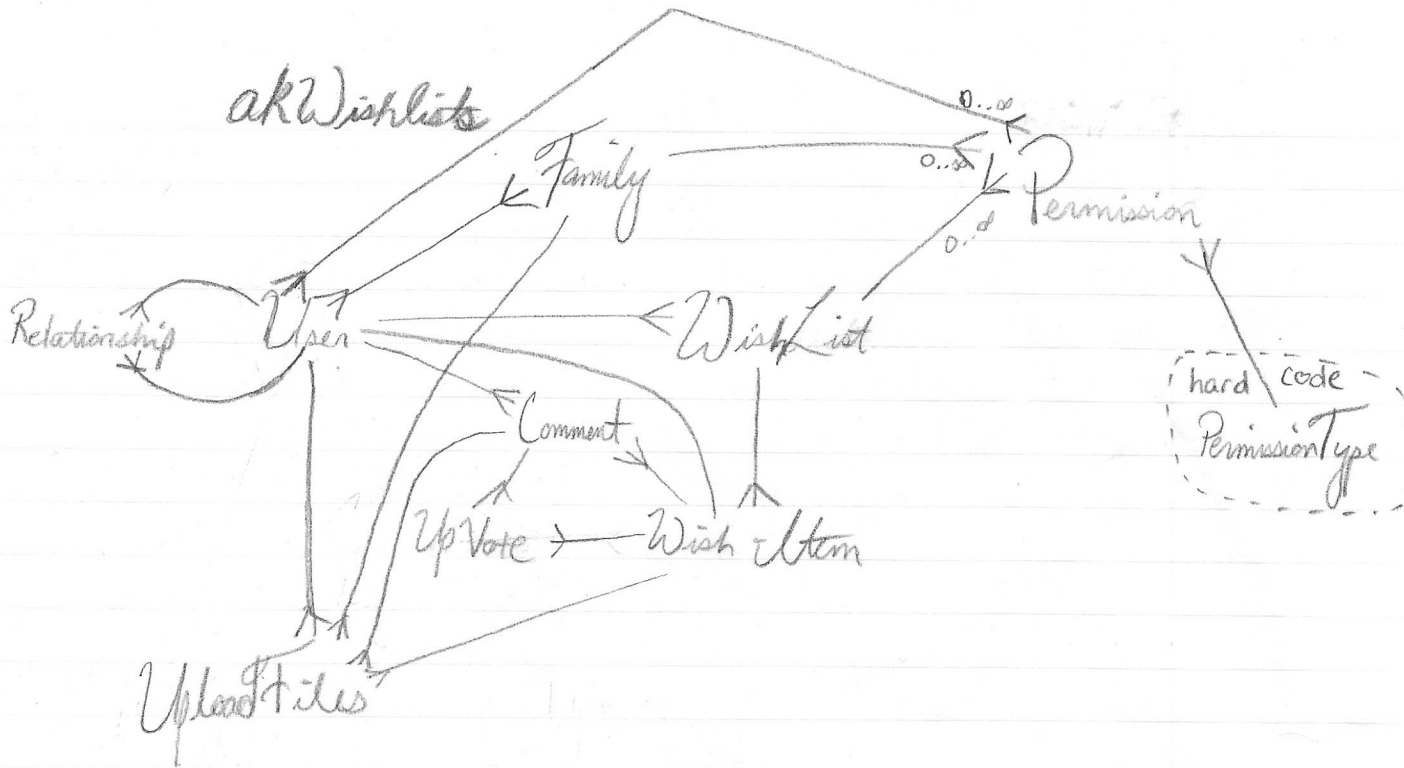 akWishlists
0..∞
Family
0..∞
Permission
0..∞
Relationship
User
WishList
hard code
PermissionType
Comment
UpVote
Wish Item
UploadFiles